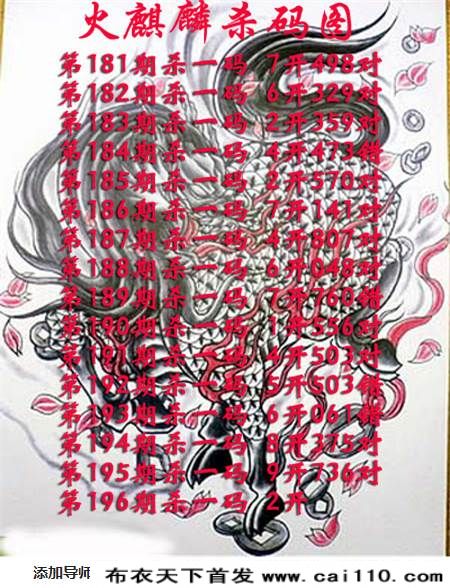 火麒麟杀码图
第181期杀一码 7开498对
第182期杀一码 6开329对
第183期杀一码 2开359对
第184期杀一码 4开473错
第185期杀一码 2开570对
第186期杀一码 7开141对
第187期杀一码 4开807对
第188期杀一码 6开048对
第189期杀一码 7开760错
第190期杀一码 1开556对
第191期杀一码 4开503对
第192期杀一码 5开503错
第193期杀一码 6开061错
第194期杀一码 8开375对
第195期杀一码 9开736对
第196期杀一码 2开
添加导师 布衣天下首发 www.cai110.com